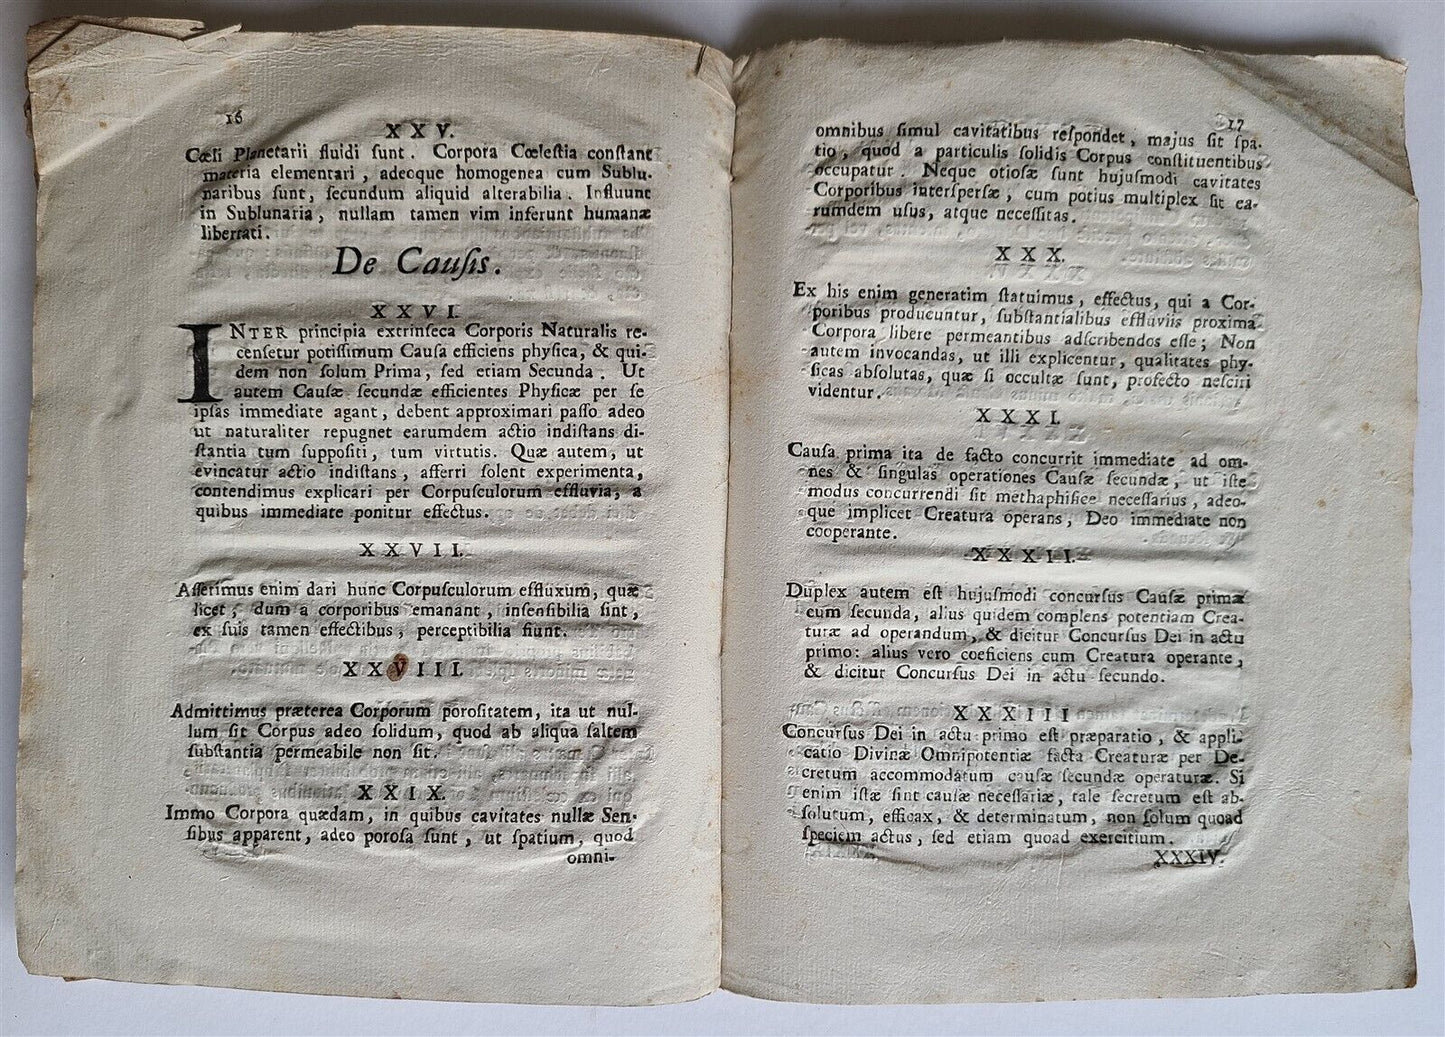 16
XXV.
Cœli Planetarii fluidi ſunt. Corpora Cœleſtia conſtant
materia elementari, adeoque homogenea cum Sublu-
naribus ſunt, ſecundum aliquid alterabilia. Influunt
in Sublunaria, nullam tamen vim inferunt humanæ
libertati.
De Cauſis.
XXVI.
INTER principia extrinſeca Corporis Naturalis re-
cenſetur potiſſimum Cauſa efficiens phyſica, & qui-
dem non ſolum Prima, ſed etiam Secunda. Ut
autem Cauſæ ſecundæ efficientes Phyſicæ per ſe
ipſas immediate agant, debent approximari paſſo adeo
ut naturaliter repugnet earumdem actio indiſtans di-
ſtantia tum ſuppoſiti, tum virtutis. Quæ autem, ut
evincatur actio indiſtans, afferri ſolent experimenta,
contendimus explicari per Corpuſculorum effluvia, a
quibus immediate ponitur effectus.
XXVII.
Aſſerimus enim dari hunc Corpuſculorum effluxum, quæ
licet, dum a corporibus emanant, inſenſibilia ſint,
ex ſuis tamen effectibus, perceptibilia fiunt.
XXVIII.
Admittimus præterea Corporum poroſitatem, ita ut nul-
lum ſit Corpus adeo ſolidum, quod ab aliqua ſaltem
ſubſtantia permeabile non ſit.
XXIX.
Immo Corpora quædam, in quibus cavitates nullæ Sen-
ſibus apparent, adeo poroſa ſunt, ut ſpatium, quod
omni-
17
omnibus ſimul cavitatibus reſpondet, majus ſit ſpa-
tio, quod a particulis ſolidis Corpus conſtituentibus
occupatur. Neque otioſæ ſunt hujuſmodi cavitates
Corporibus interſperſæ, cum potius multiplex ſit ea-
rumdem uſus, atque neceſſitas.
XXX.
Ex his enim generatim ſtatuimus, effectus, qui a Cor-
poribus producuntur, ſubſtantialibus effluviis proxima
Corpora libere permeantibus adſcribendos eſſe; Non
autem invocandas, ut illi explicentur, qualitates phy-
ſicas abſolutas, quæ ſi occultæ ſunt, profecto neſciri
videntur.
XXXI.
Cauſa prima ita de facto concurrit immediate ad om-
nes & ſingulas operationes Cauſæ ſecundæ, ut iſte
modus concurrendi ſit methaphiſice neceſſarius, adeo-
que implicet Creatura operans, Deo immediate non
cooperante.
XXXII.
Duplex autem eſt hujuſmodi concurſus Cauſæ primæ
cum ſecunda, alius quidem complens potentiam Crea-
turæ ad operandum, & dicitur Concurſus Dei in actu
primo: alius vero coeficiens cum Creatura operante,
& dicitur Concurſus Dei in actu ſecundo.
XXXIII
Concurſus Dei in actu primo eſt præparatio, & appli-
catio Divinæ Omnipotentiæ facta Creaturæ per De-
cretum accommodatum cauſæ ſecundæ operaturæ. Si
enim iſtæ ſint cauſæ neceſſariæ, tale ſecretum eſt ab-
ſolutum, efficax, & determinatum, non ſolum quoad
ſpeciem actus, ſed etiam quoad exercitium.
XXXIV.